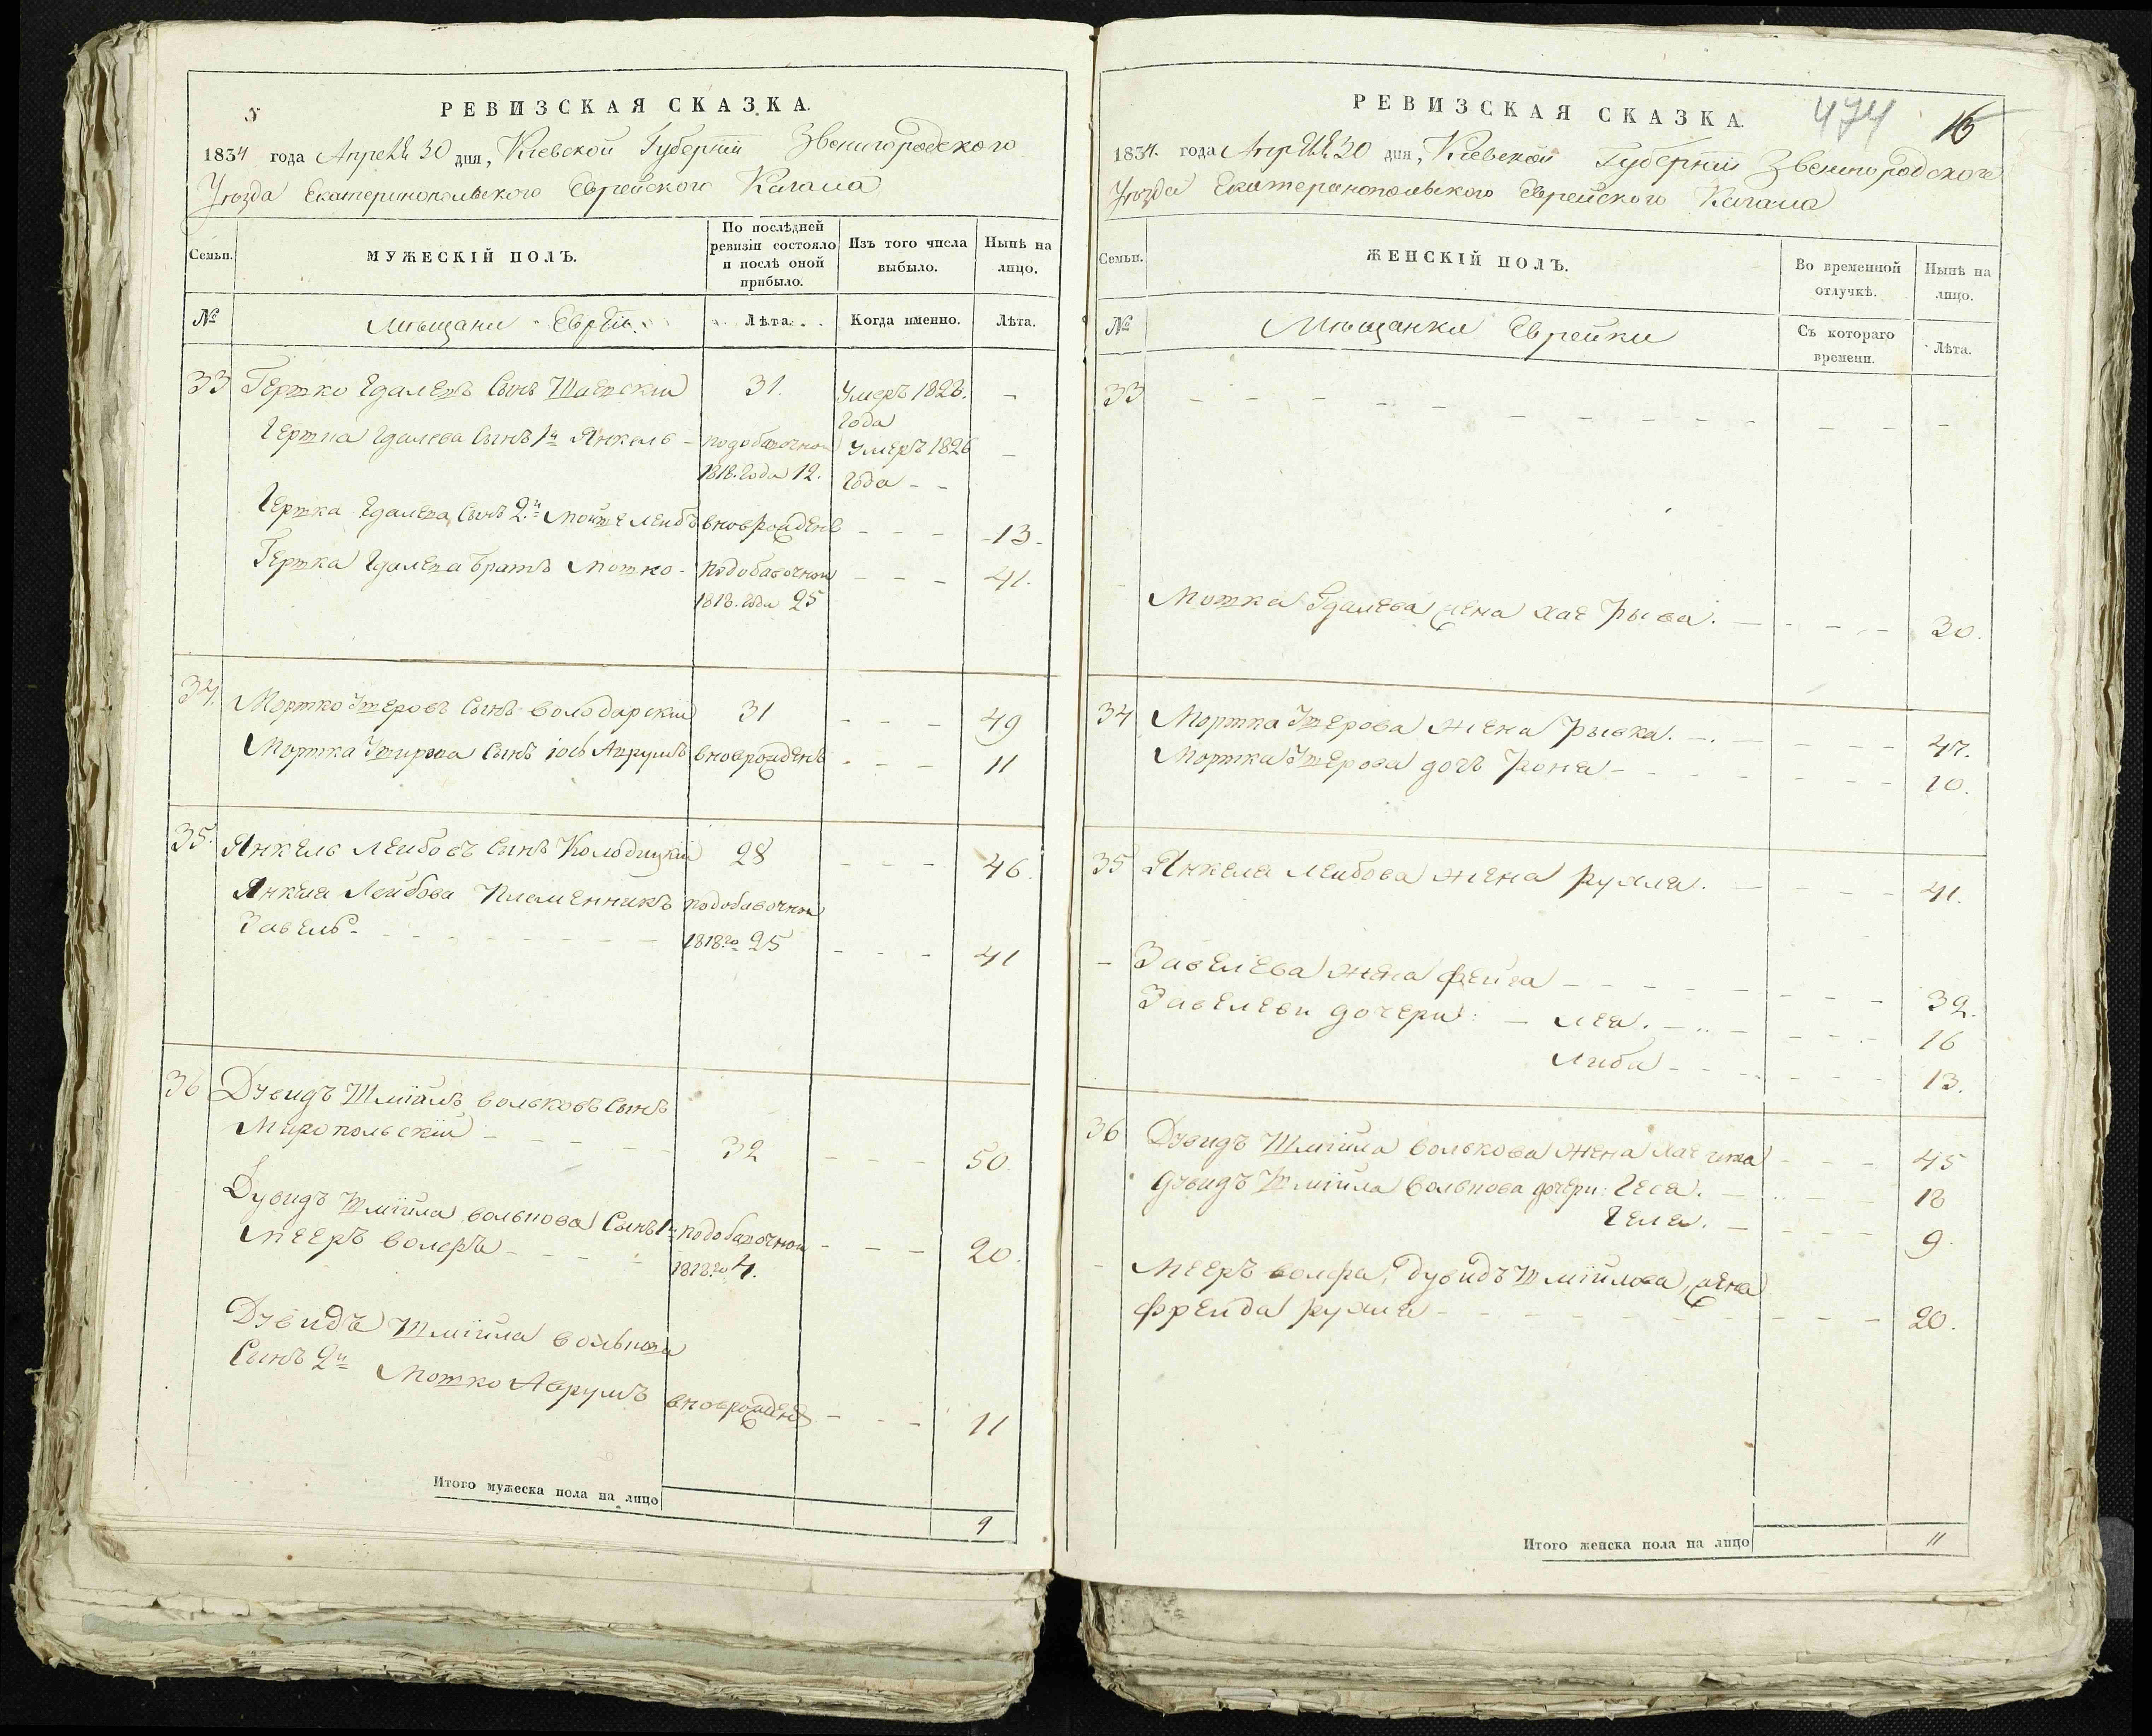 5
РЕВИЗСКАЯ СКАЗКА.
1834 года Апреля 30 дня, Кіевской Губерніи Звенигородского
Уѣзда Екатеринопольского Еврейского Кагала
Семьи.
МУЖЕСКІЙ ПОЛЪ.
По послѣдней ревизіи состояло и послѣ оной прибыло.
Изъ того числа выбыло.
Нынѣ на лицо.
№
Мѣщани Евреи.
Лѣта.
Когда именно.
Лѣта.
33 Гершко Гдалевъ Сынъ 31. Умеръ 1823. –
года
Гершка Гдалева Сынъ 1й Янкель – подобавочной Умеръ 1826 –
1818. года 12. года – –
Гершка Гдалева Сынъ 2й Мойше Лейбъ вноврожденъ – – – 13.
Гершка Гдалева братъ Мошко – подобавочной – – – 41.
1818. года 25
34. Мортко Ушеровъ Сынъ володарскій 31 – – – 49
Мортка Ушерова Сынъ іось Аврумъ вноврожденъ – – – 11
35. Янкель Лейбовъ Сынъ Колодицкій 28 – – – 46.
Янкеля Лейбова Племенникъ подобавочной
Завель – 1818го 25 – – – 41
36 Дувидъ Шмїилъ вольковъ Сынъ
Миропольскій – – – 32 – – – 50.
Дувидъ Шмїила волькова Сынъ 1й подобавочной
Мееръ волфъ – – – 1818го 4. – – – 20.
Дувидъ Шмїила волькова
Сынъ 2й Мошко Аврумъ вноврожденъ – – – 11
Итого мужеска пола на лицо
9
474
16
РЕВИЗСКАЯ СКАЗКА.
1834. года Апреля 30 дня, Кіевской Губерніи Звенигородского
Уѣзда Екатеринопольского Еврейского Кагала
Семьи.
ЖЕНСКІЙ ПОЛЪ.
Во временной отлучкѣ.
Нынѣ на лицо.
№
Мѣщанки Еврейки
Съ котораго времени.
Лѣта.
33
Мошка Гдалева жена хае Рыва. – – – 30.
34 Мортка Ушерова жена Рывка. – – – 47.
Мортка Ушерова дочъ – – – 10.
35 Янкеля Лейбова жена Рухля. – – – 41.
– Завелева жена фейга – – – 32.
Завелеви дочери: – лея. – – – 16
Либа – – – 13.
36 Дувидъ Шмїила волькова жена – – – 45
Дувидъ Шмїила волькова дочери: Геся. – – – 18
Геля. – – – 9.
– Мееръ волфа, Дувидъ Шмїилова, жена
фрейда рухля – – – 20.
Итого женска пола на лицо
11